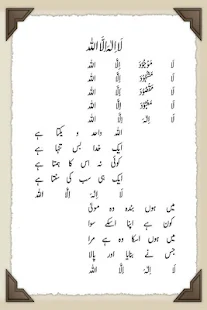 لَا اِلٰہَ اِلَّا اللہ
لَا مَوْجُوْدَ اِلَّا اللہ
لَا مَشْہُوْدَ اِلَّا اللہ
لَا مَقْصُوْدَ اِلَّا اللہ
لَا مَعْبُوْدَ اِلَّا اللہ
لَا اِلٰہَ اِلَّا اللہ
اللہ واحد و یکتا ہے
ایک خدا بس تنہا ہے
کوئی نہ اس کا ہمتا ہے
ایک ہی سب کی سنتا ہے
لَا اِلٰہَ اِلَّا اللہ
میں ہوں بندہ وہ مولیٰ
کون ہے اپنا اسکے سوا
میں ہوں اسکا وہ ہے مرا
جس نے بنایا اور پالا
لَا اِلٰہَ اِلَّا اللہ